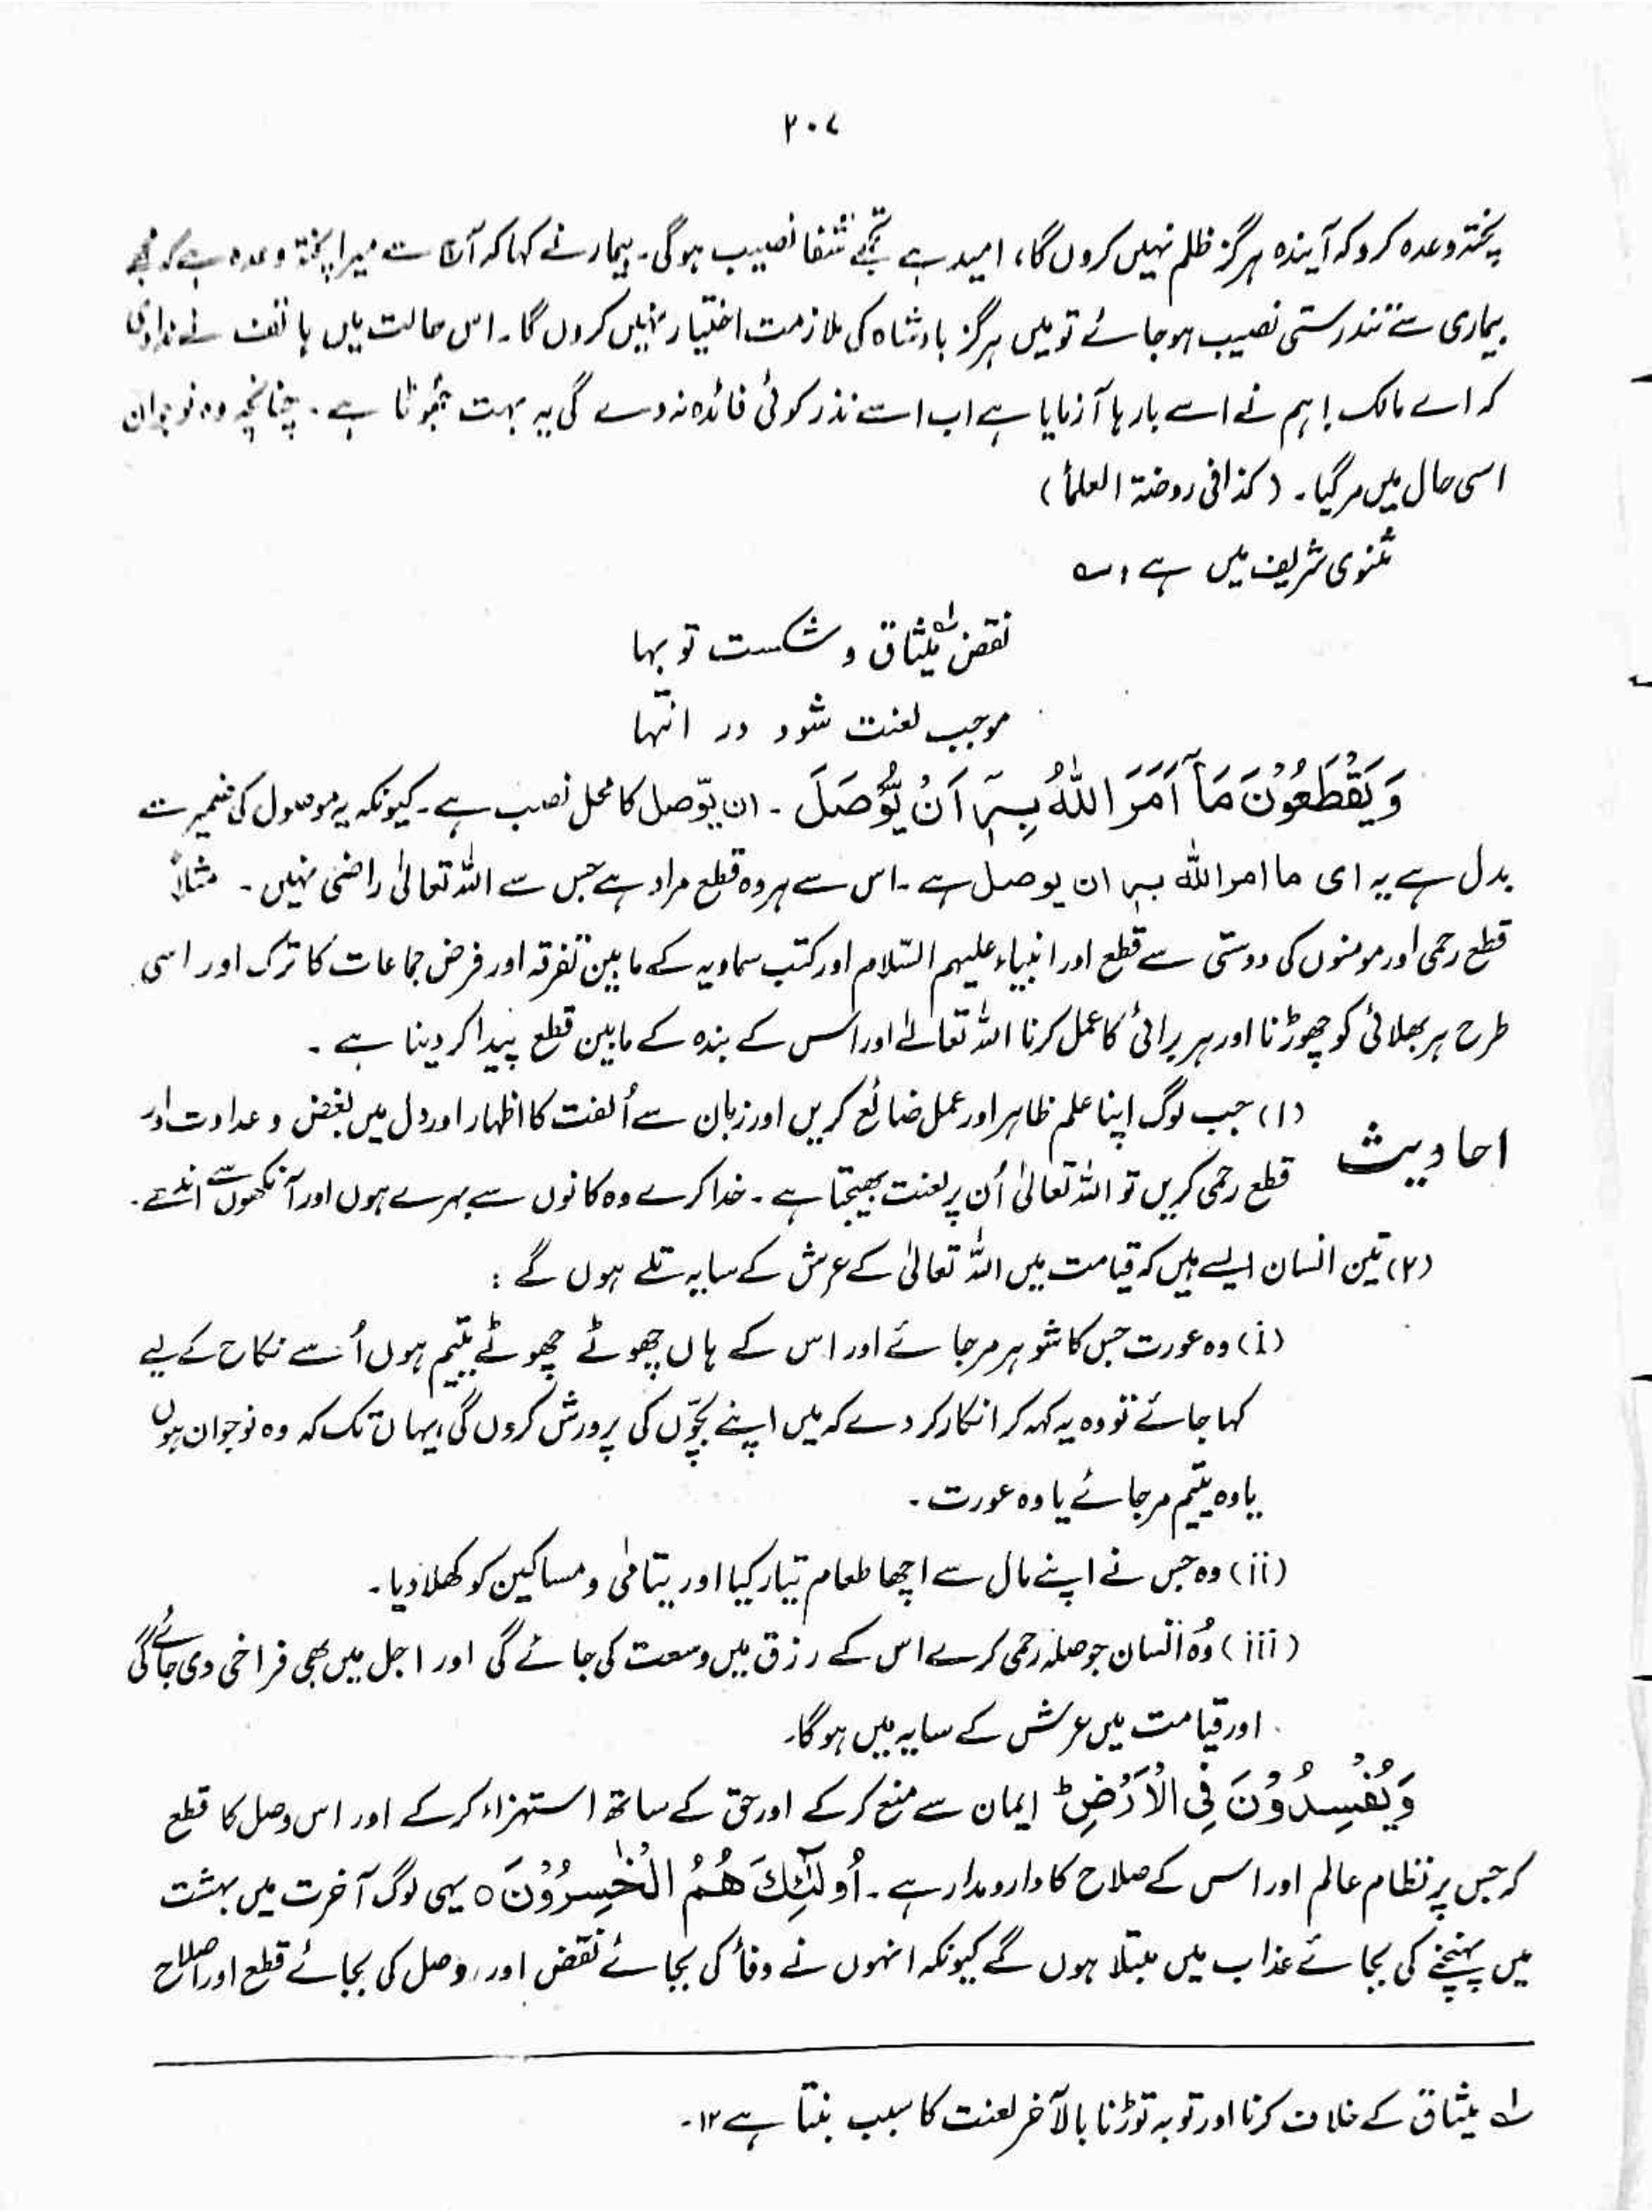 ۲۰۷
پختہ وعدہ کرو کہ آیندہ ہرگز ظلم نہیں کروں گا، امید ہے تجھے شفا نصیب ہوگی۔ بیمار نے کہا کہ آج سے میرا پختہ وعدہ ہے کہ مجھے
بیماری سے تندرستی نصیب ہو جائے تو میں ہرگز بادشاہ کی ملازمت اختیار نہیں کروں گا۔ اس حالت میں ہاتف نے ندا دی
کہ اے مالک! ہم نے اسے بارہا آزمایا ہے اب اسے نذر کوئی فائدہ نہ دے گی یہ بہت جھوٹا ہے۔ چنانچہ وہ نوجوان
اسی حال میں مر گیا۔ (کذا فی روضۃ العلمأ)
مثنوی شریف میں ہے : ؎
نقض لہ میثاق و شکست توبہا
موجب لعنت شود در انتہا
وَیَقْطَعُوْنَ مَآ اَمَرَ اللّٰہُ بِہٖٓ اَنْ یُّوْصَلَ ۔ ان یوّصل کا محل نصب ہے۔ کیونکہ یہ موصول کی ضمیر سے
بدل ہے یہ ای ما امر اللّٰہ بہٖ ان یوصل ہے۔ اس سے ہر وہ قطع مراد ہے جس سے اللہ تعالیٰ راضی نہیں ۔ مثلاً
قطع رحمی اور مومنوں کی دوستی سے قطع اور انبیاء علیہم السّلام اور کتب سماویہ کے مابین تفرقہ اور فرض جماعات کا ترک اور اسی
طرح ہر بھلائی کو چھوڑنا اور ہر برائی کا عمل کرنا اللہ تعالےٰ اور اس کے بندہ کے مابین قطع پیدا کر دینا ہے ۔
احادیث (۱) جب لوگ اپنا علم ظاہر اور عمل ضائع کریں اور زبان سے اُلفت کا اظہار اور دل میں بغض و عداوت اور
قطع رحمی کریں تو اللہ تعالیٰ اُن پر لعنت بھیجتا ہے ۔ خدا کرے وہ کانوں سے بہرے ہوں اور آنکھوں سے اندھے۔
(۲) تین انسان ایسے ہیں کہ قیامت میں اللہ تعالیٰ کے عرش کے سایہ تلے ہوں گے :
(i) وہ عورت جس کا شوہر مر جائے اور اس کے ہاں چھوٹے چھوٹے یتیم ہوں اُسے نکاح کے لیے
کہا جائے تو وہ یہ کہہ کر انکار کر دے کہ میں اپنے بچّوں کی پرورش کروں گی، یہاں تک کہ وہ نوجوان ہوں
یا وہ یتیم مر جائے یا وہ عورت ۔
(ii) وہ جس نے اپنے مال سے اچھا طعام تیار کیا اور یتامٰی و مساکین کو کھلا دیا۔
(iii) وُہ انسان جو صلہ رحمی کرے اس کے رزق میں وسعت کی جائے گی اور اجل میں بھی فراخی دی جائے گی
اور قیامت میں عرش کے سایہ میں ہوگا۔
وَیُفْسِدُوْنَ فِی الْاَرْضِ ؕ ایمان سے منع کرکے اور حق کے ساتھ استہزاء کرکے اور اس وصل کا قطع
کہ جس پر نظام عالم اور اس کے صلاح کا دارومدار ہے۔ اُولٰٓئِکَ ھُمُ الْخٰسِرُوْنَ ○ یہی لوگ آخرت میں بہشت
میں پہنچنے کی بجائے عذاب میں مبتلا ہوں گے کیونکہ انہوں نے وفأ کی بجائے نقض اور وصل کی بجائے قطع اور اصلاح
لہ میثاق کے خلاف کرنا اور توبہ توڑنا بالآخر لعنت کا سبب بنتا ہے ۱۲۔